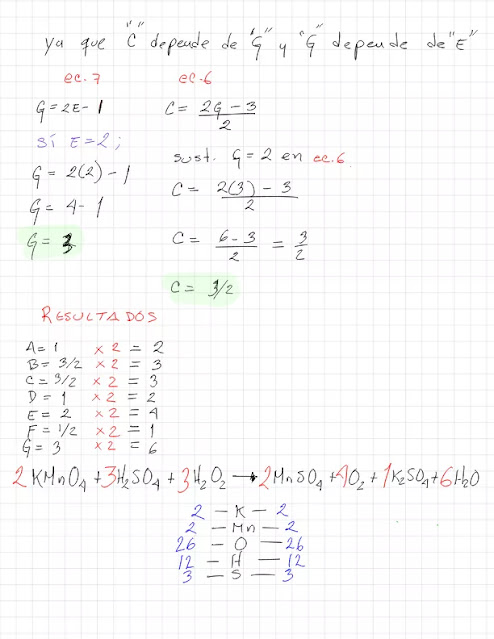 ya que "C" depende de "G" y "G" depende de "E"
ec. 7
G = 2E - 1
SÍ E = 2;
G = 2(2) - 1
G = 4 - 1
G = 3
ec. 6
C = 2G - 3 / 2
sust. G = 2 en ec. 6
C = 2(3) - 3 / 2
C = 6 - 3 / 2 = 3 / 2
C = 3/2
RESULTADOS
A = 1 x 2 = 2
B = 3/2 x 2 = 3
C = 3/2 x 2 = 3
D = 1 x 2 = 2
E = 2 x 2 = 4
F = 1/2 x 2 = 1
G = 3 x 2 = 6
2 KMnO4 + 3H2SO4 + 3H2O2 → 2MnSO4 + 4O2 + 1K2SO4 + 6H2O
2 — K — 2
2 — Mn — 2
26 — O — 26
12 — H — 12
3 — S — 3